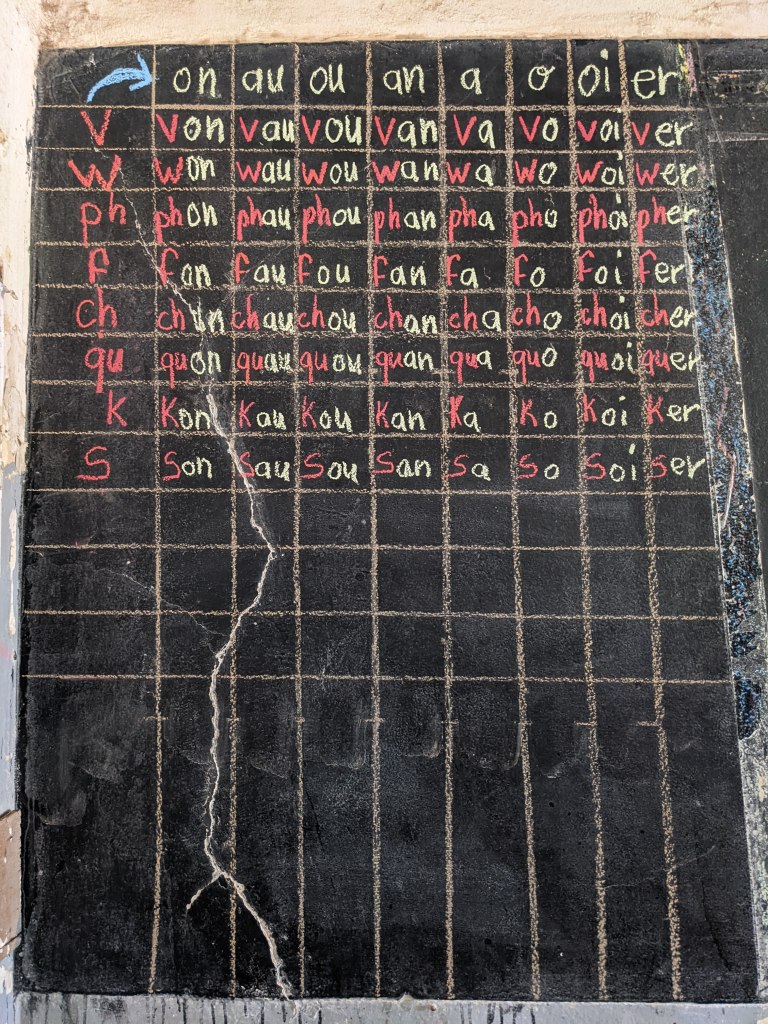 on au ou an a o oi er
v von vau vou van va vo voi ver
w won wau wou wan wa wo woi wer
ph phon phau phou phan pha pho phoi pher
f fon fau fou fan fa fo foi fer
ch chon chau chou chan cha cho choi cher
qu quon quau quou quan qua quo quoi quer
k kon kau kou kan ka ko koi ker
s son sau sou san sa so soi ser